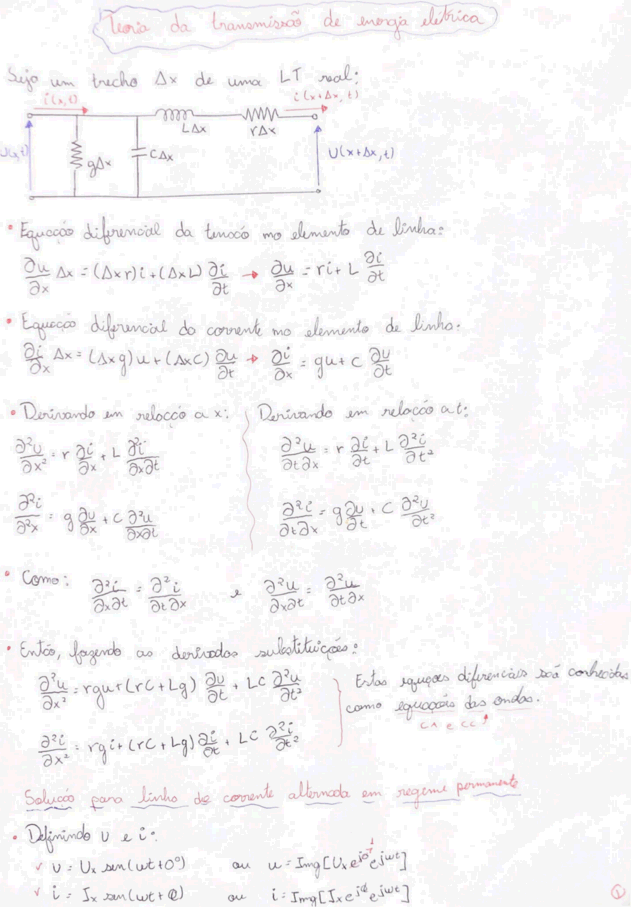 Teoria da transmissão de energia elétrica
Sejo um trecho Δx de uma LT real:
i(x,t) i(x+Δx,t)
LΔx rΔx
U(x,t) gΔx CΔx U(x+Δx,t)
• Equação diferencial da tensão no elemento de linha:
∂u/∂x Δx = (Δx r)i + (Δx L) ∂i/∂t → ∂u/∂x = ri + L ∂i/∂t
• Equação diferencial da corrente no elemento de linha:
∂i/∂x Δx = (Δx g)u + (Δx C) ∂u/∂t → ∂i/∂x = gu + C ∂u/∂t
• Derivando em relação a x: Derivando em relação a t:
∂²u/∂x² = r ∂i/∂x + L ∂²i/∂x∂t ∂²u/∂t∂x = r ∂i/∂t + L ∂²i/∂t²
∂²i/∂²x = g ∂u/∂x + C ∂²u/∂x∂t ∂²i/∂t∂x = g ∂u/∂t + C ∂²u/∂t²
• Como: ∂²i/∂x∂t = ∂²i/∂t∂x e ∂²u/∂x∂t = ∂²u/∂t∂x
• Então, fazendo as derivadas substituições:
∂²u/∂x² = rgur(rC + Lg) ∂u/∂t + LC ∂²u/∂t²
∂²i/∂x² = rgi + (rC + Lg) ∂i/∂t + LC ∂²i/∂t²
Estas equações diferenciais são conhecidas
como equações das ondas.
CA e CC
Solução para linha de corrente alternada em regime permanente
• Definindo U e i:
✓ U = Ux sen(ωt + 0°) ou u = Img[Ux e^j0° e^jωt]
✓ i = Ix sen(ωt + φ) ou i = Img[Ix e^jφ e^jωt]
1